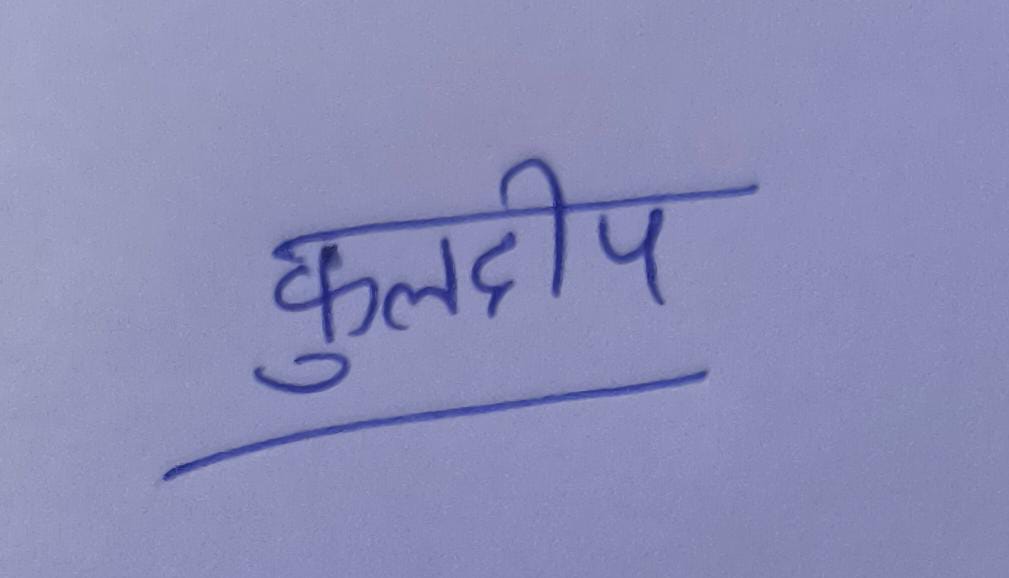 कुलदीप